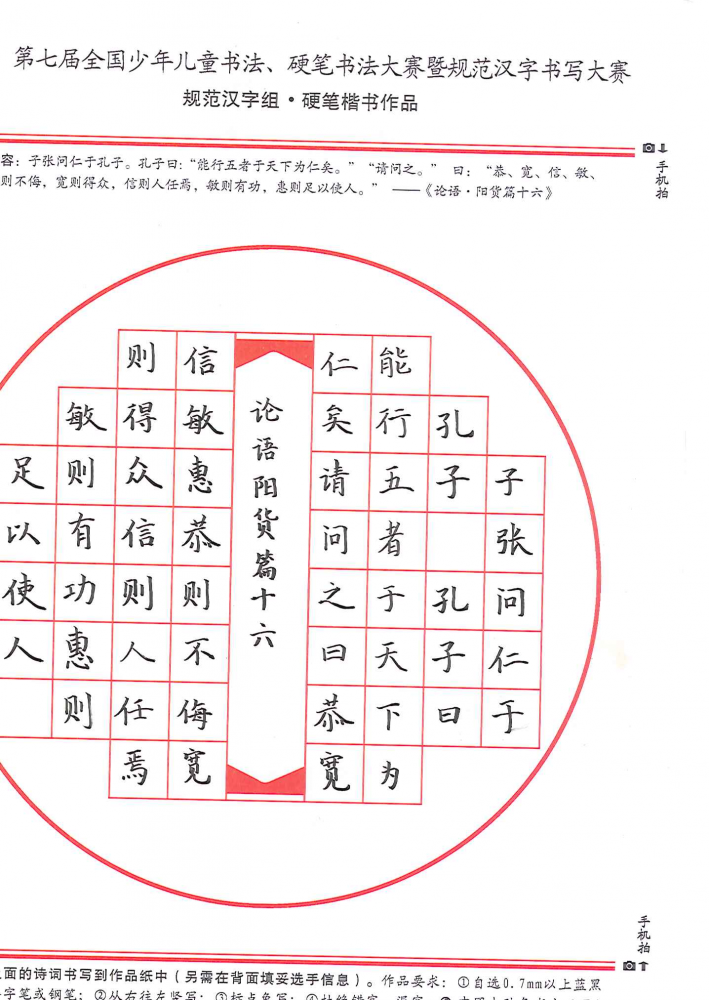 第七届全国少年儿童书法、硬笔书法大赛暨规范汉字书写大赛
规范汉字组·硬笔楷书作品
容：子张问仁于孔子。孔子曰：“能行五者于天下为仁矣。”“请问之。”曰：“恭、宽、信、敏、
则不侮，宽则得众，信则人任焉，敏则有功，惠则足以使人。” ——《论语·阳货篇十六》
手机拍
子张问仁于
孔子 孔子曰
能行五者于天下为
仁矣请问之曰恭宽
论语阳货篇十六
信敏惠恭则不侮宽
则得众信则人任焉
敏则有功惠则
足以使人
手机拍
面的诗词书写到作品纸中（另需在背面填妥选手信息）。作品要求：①自选0.7mm以上蓝黑
字笔或钢笔；②从右往左竖写；③标点免写；④杜绝错字、